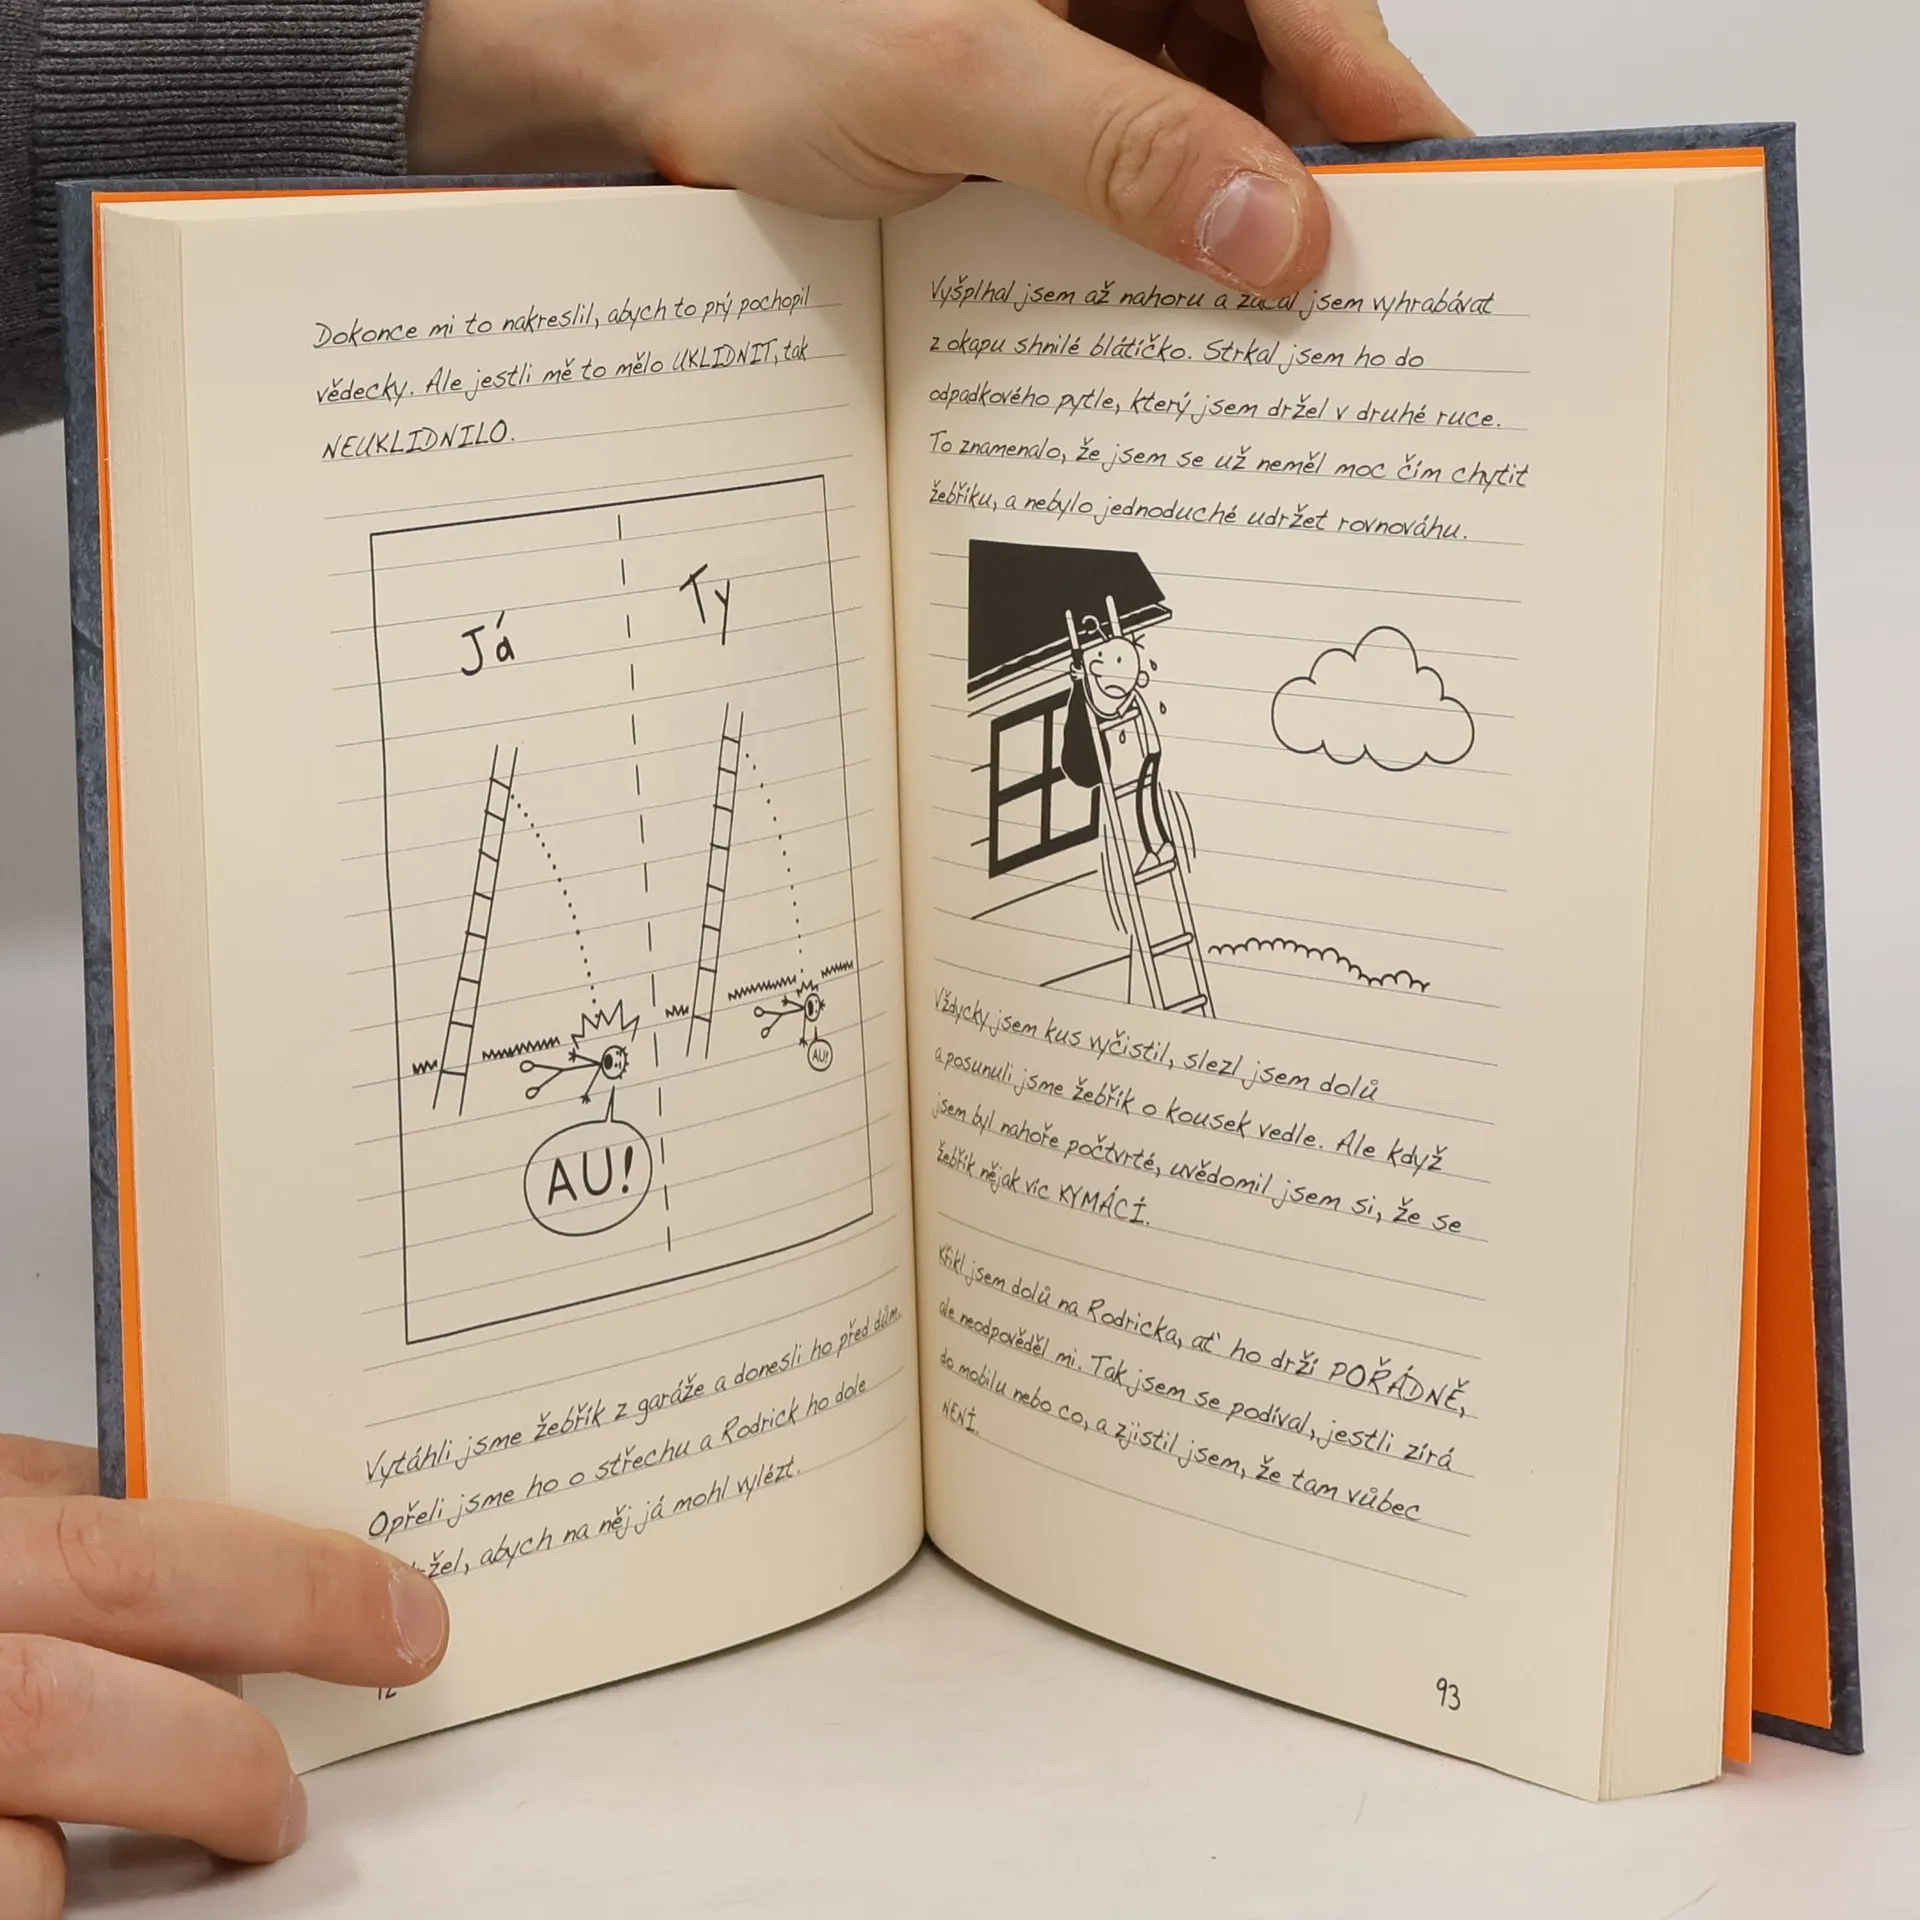 Dokonce mi to nakreslil, abych to prý pochopil
vědecky. Ale jestli mě to mělo UKLIDNIT, tak
NEUKLIDNILO.
Já
Ty
AU!
AU!
Vytáhli jsme žebřík z garáže a donesli ho před dům.
Opřeli jsme ho o střechu a Rodrick ho dole
abych na něj já mohl vylézt.
Vyšplhal jsem až nahoru a začal jsem vyhrabávat
z okapu shnilé blátíčko. Strkal jsem ho do
odpadkového pytle, který jsem držel v druhé ruce.
To znamenalo, že jsem se už neměl moc čím chytit
žebříku, a nebylo jednoduché udržet rovnováhu.
Vždycky jsem kus vyčistil, slezl jsem dolů
a posunuli jsme žebřík o kousek vedle. Ale když
jsem byl nahoře počtvrté, uvědomil jsem si, že se
žebřík nějak víc KYMÁCÍ.
Křikl jsem dolů na Rodricka, ať ho drží POŘÁDNĚ,
ale neodpověděl mi. Tak jsem se podíval, jestli zírá
do mobilu nebo co, a zjistil jsem, že tam vůbec
NENÍ.
93